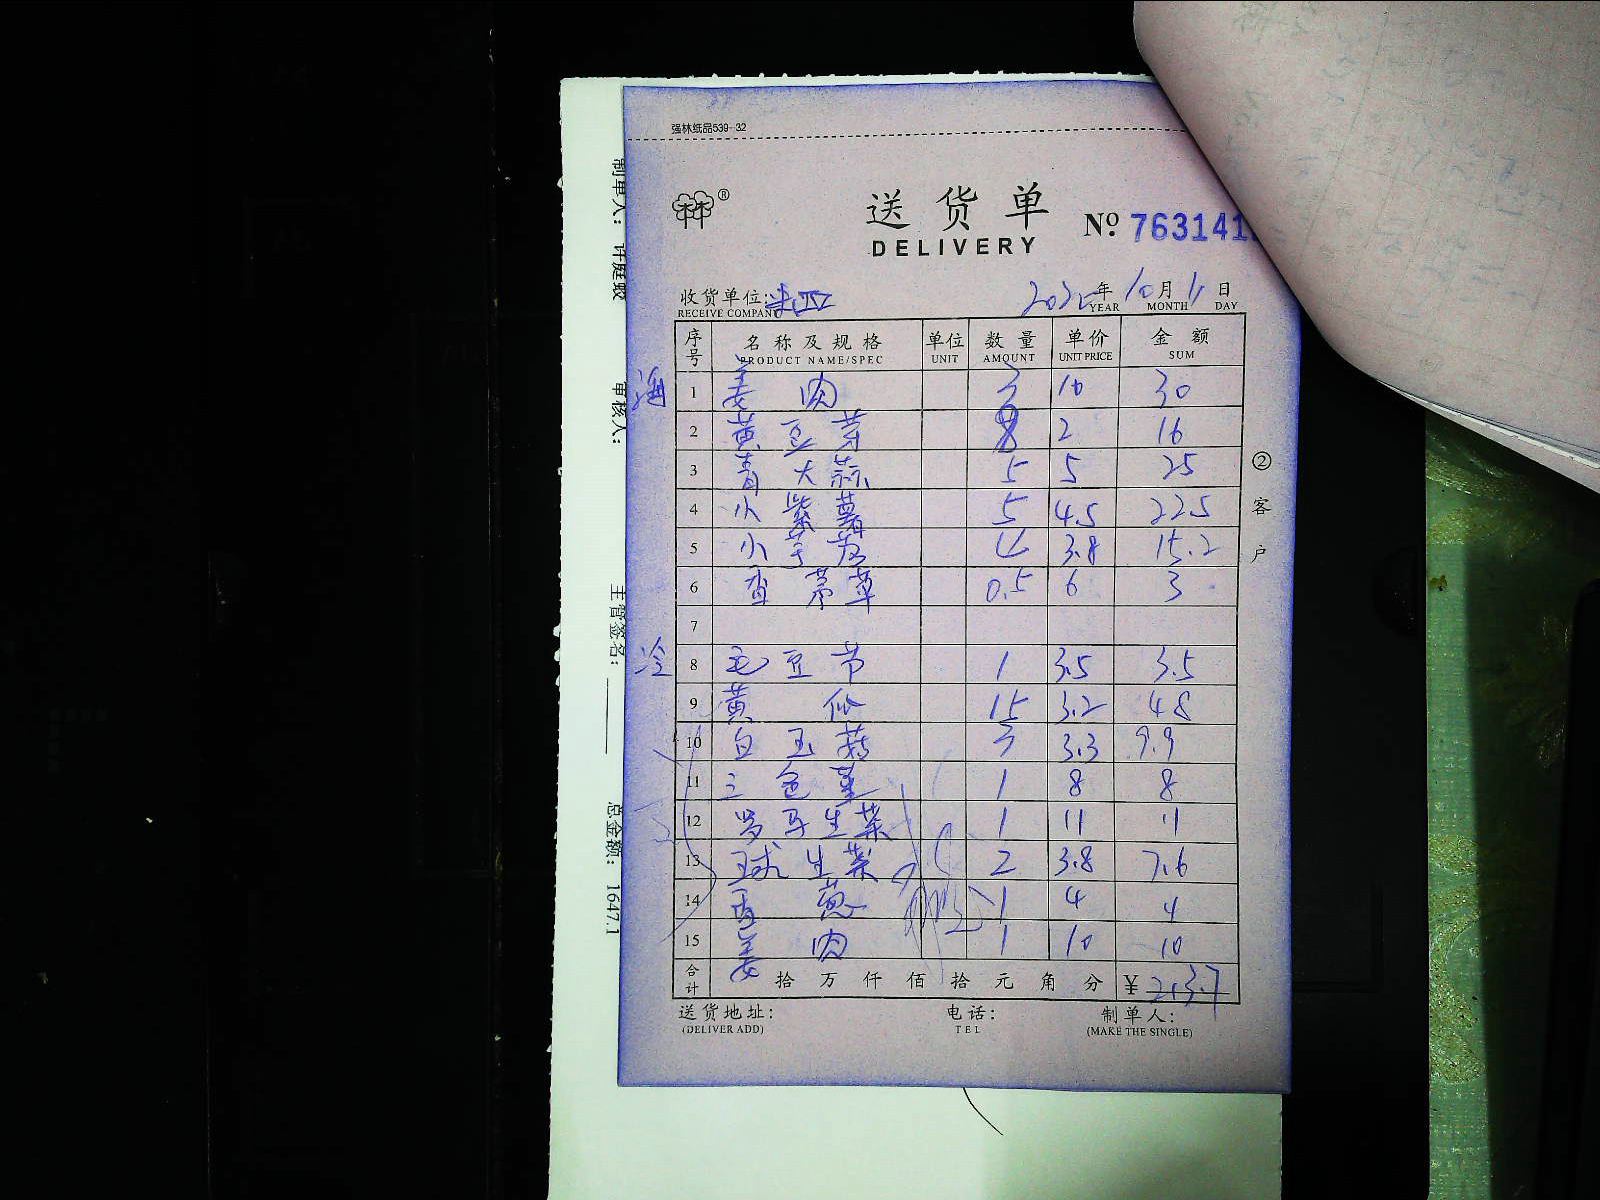 强林纸品539-32
林®
送货单 Nº 763141
DELIVERY
收货单位: 年 10月 11日
RECEIVE COMPANY YEAR MONTH DAY
序号 名称及规格 单位 数量 单价 金额
PRODUCT NAME/SPEC UNIT AMOUNT UNIT PRICE SUM
1 姜肉 3 10 30
2 黄豆芽 8 2 16
3 青大蒜 5 5 25
4 小紫薯 5 4.5 22.5
5 小芋艿 4 3.8 15.2
6 香茅草 0.5 6 3
7
冷 8 毛豆节 1 3.5 3.5
9 黄瓜 15 3.2 48
10 白玉菇 3 3.3 9.9
11 三色堇 1 8 8
12 罗马生菜 1 11 11
13 球生菜 2 3.8 7.6
14 西葱 1 4 4
15 姜肉 1 10 10
合计 拾万仟佰拾元角分 ¥ 213.7
送货地址: 电话: 制单人:
(DELIVER ADD) TEL (MAKE THE SINGLE)
②客户
制单人: 许庭蛟
审核人:
主管签名:
总金额: 1647.1